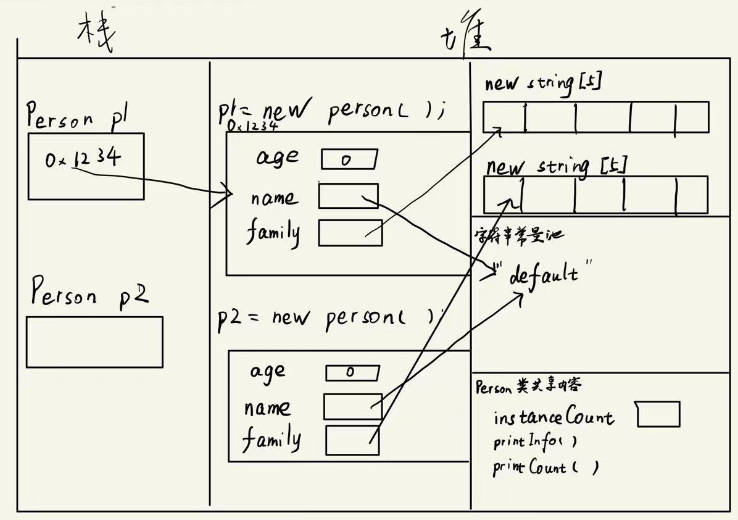 栈
堆
Person p1
0x1234
Person p2
p1= new person( );
0x1234
age 0
name
family
p2 = new person( );
age 0
name
family
new string [5]
new string [5]
字符串常量池
"default"
Person 类共享内容
instanceCount
printInfo( )
printCount( )